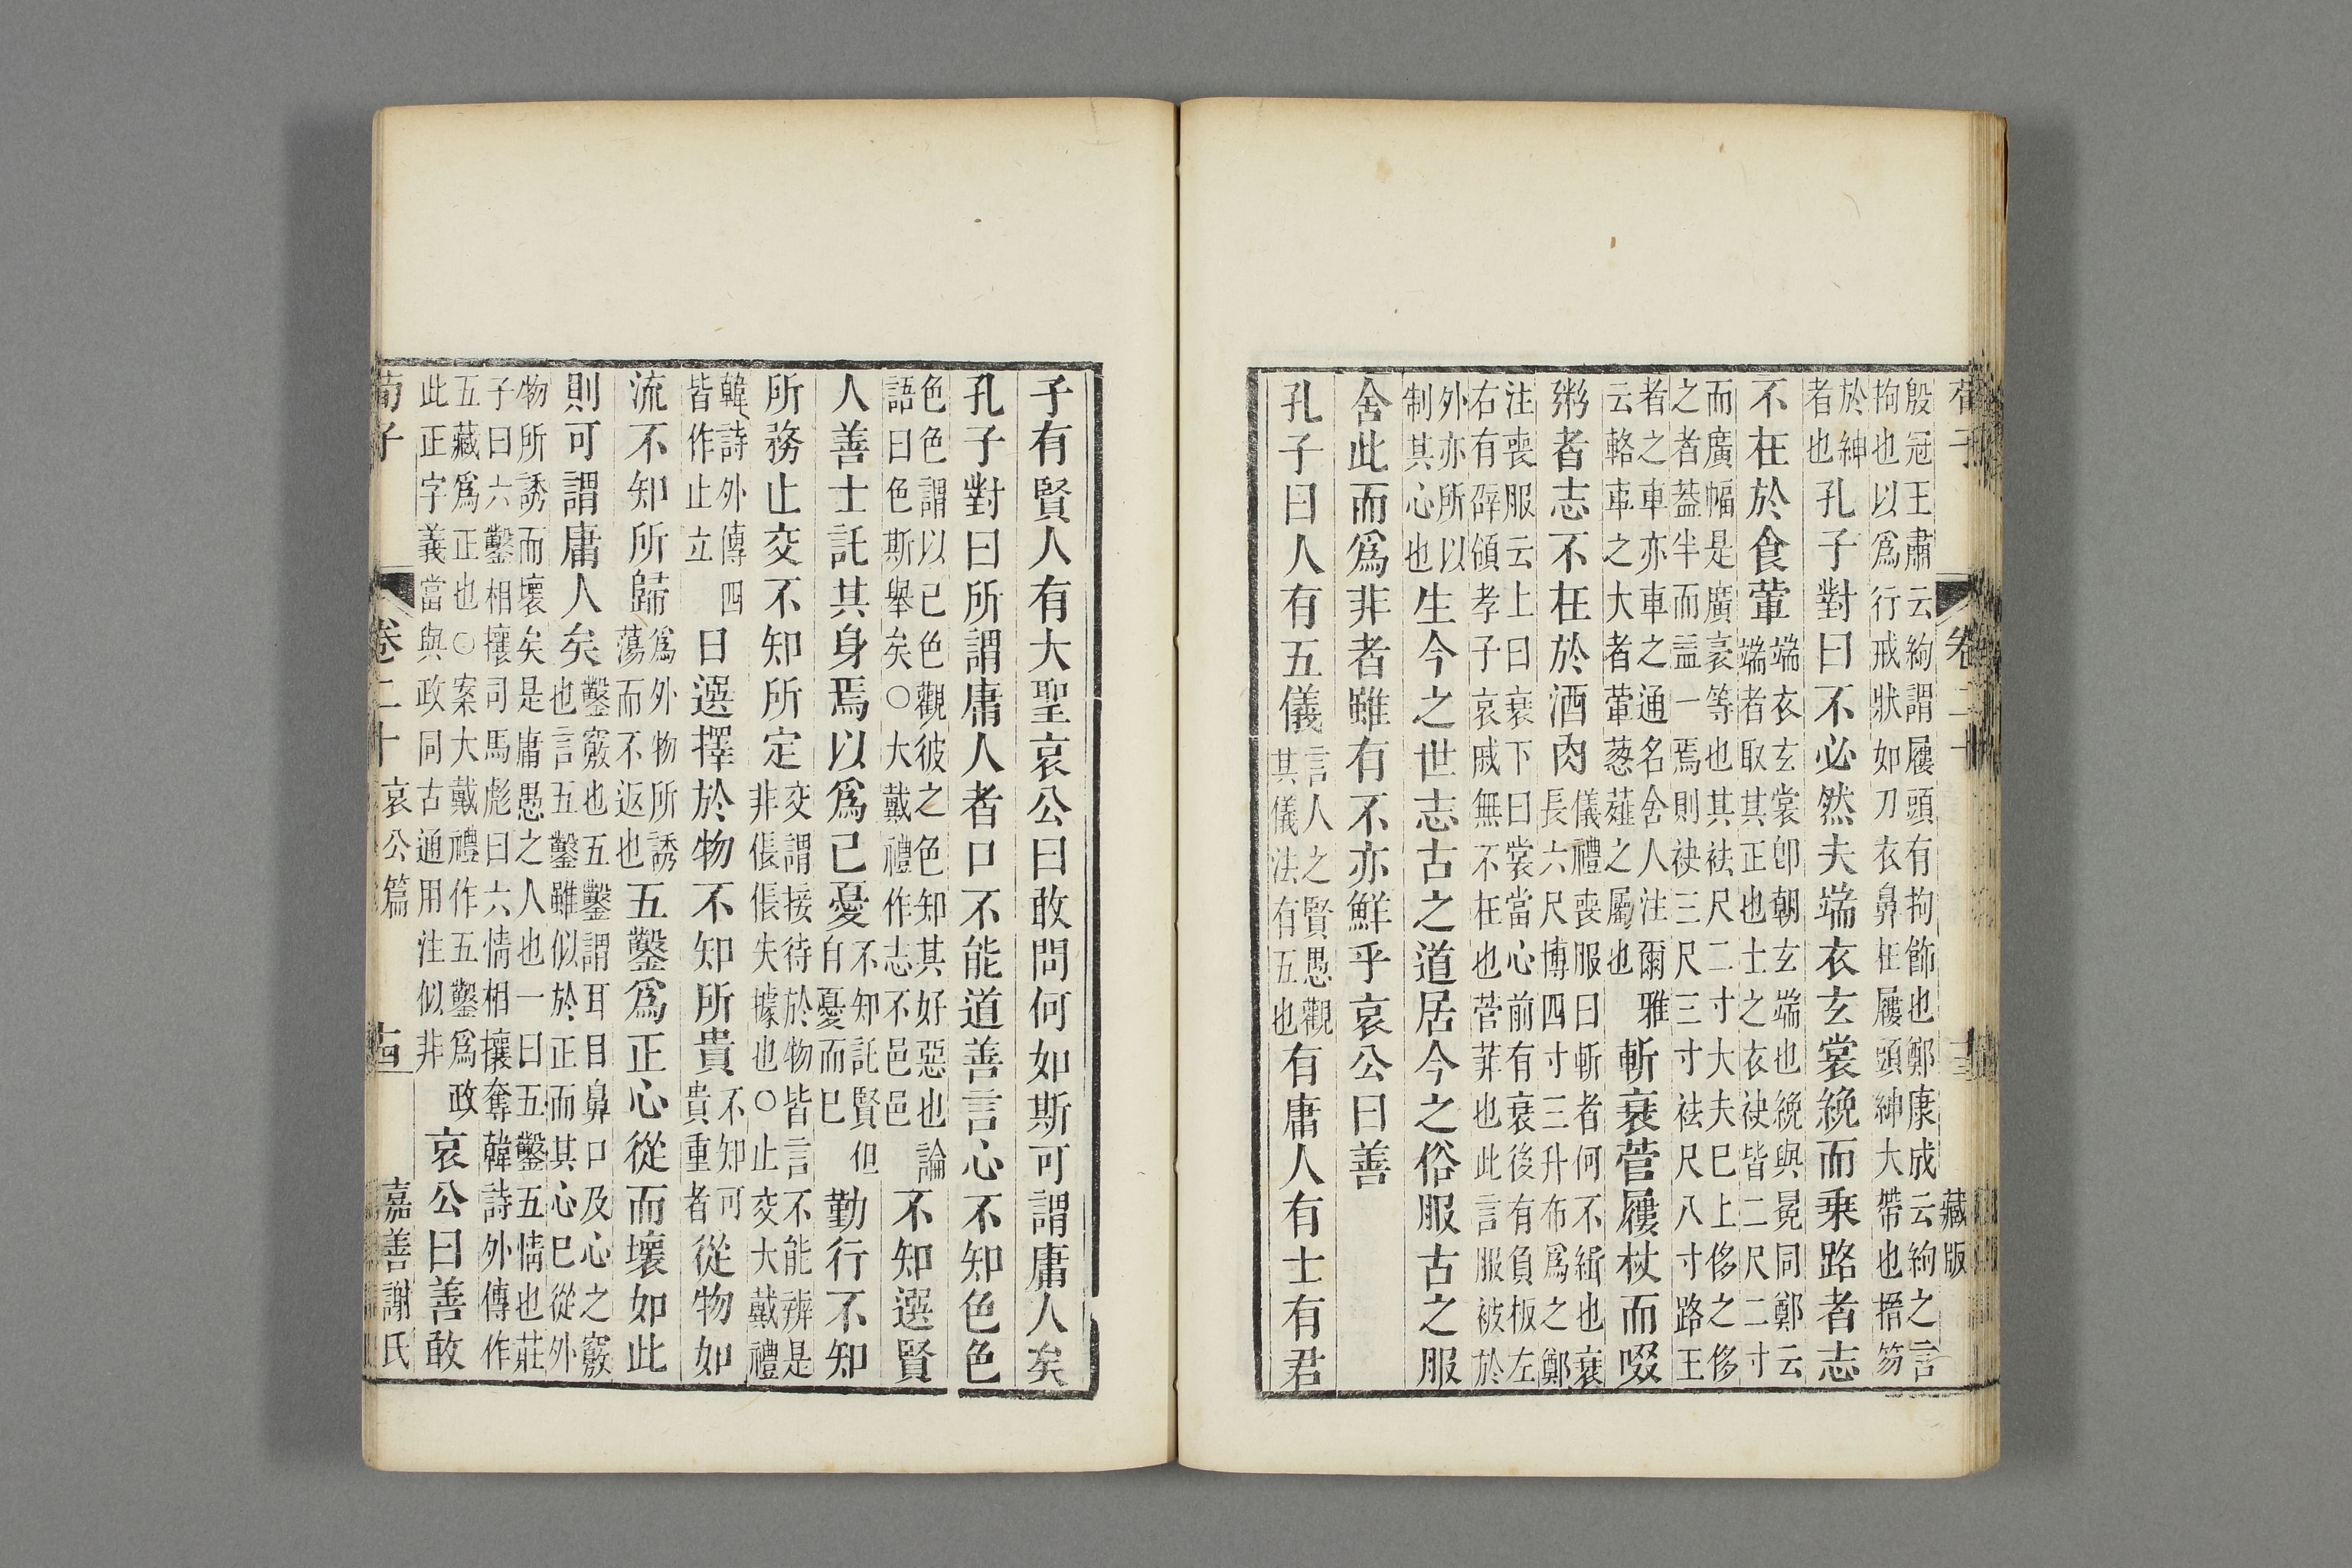 殷冠王肅云絇謂屨頭有拘飾也鄭康成云絇之言
拘也以爲行戒狀如刀衣鼻在屨頭紳大帶也搢笏
於紳
者也
孔子對曰不必然夫端衣玄裳絻而乘路者志
不在於食葷
端衣玄裳卽朝玄端也絻與冕同鄭云
端者取其正也士之衣袂皆二尺二寸
而廣幅是廣袤等也其袪尺二寸大夫已上侈之侈
之者葢半而益一焉則袂三尺三寸袪尺八寸路王
者之車亦車之通名舍人注爾雅
云輅車之大者葷蔥薤之屬也
斬衰菅屨杖而啜
粥者志不在於酒肉
儀禮喪服曰斬者何不緝也衰
長六尺博四寸三升布爲之鄭
注喪服云上曰衰下曰裳當心前有衰後有負板左
右有辟領孝子哀戚無不在也菅菲也此言服被於
外亦所以
制其心也
生今之世志古之道居今之俗服古之服
舍此而爲非者雖有不亦鮮乎哀公曰善
孔子曰人有五儀
言人之賢愚觀
其儀法有五也
有庸人有士有君
子有賢人有大聖哀公曰敢問何如斯可謂庸人矣
孔子對曰所謂庸人者口不能道善言心不知色色
色色謂以己色觀彼之色知其好惡也論
語曰色斯舉矣○大戴禮作志不邑邑
不知選賢
人善士託其身焉以爲己憂
不知託賢但
自憂而已
勤行不知
所務止交不知所定
交謂接待於物皆言不能辨是
非倀倀失據也○止交大戴禮
韓詩外傳四
皆作止立
日選擇於物不知所貴
不知可
貴重者
從物如
流不知所歸
爲外物所誘
蕩而不返也
五鑿爲正心從而壞如此
則可謂庸人矣
鑿竅也五鑿謂耳目鼻口及心之竅
也言五鑿雖似於正而其心已從外
物所誘而壞矣是庸愚之人也一曰五鑿五情也莊
子曰六鑿相攘司馬彪曰六情相攘奪韓詩外傳作
五藏爲正也○案大戴禮作五鑿爲政
此正字義當與政同古通用注似非
哀公曰善敢
荀子
卷二十
哀公篇
嘉善謝氏
藏版